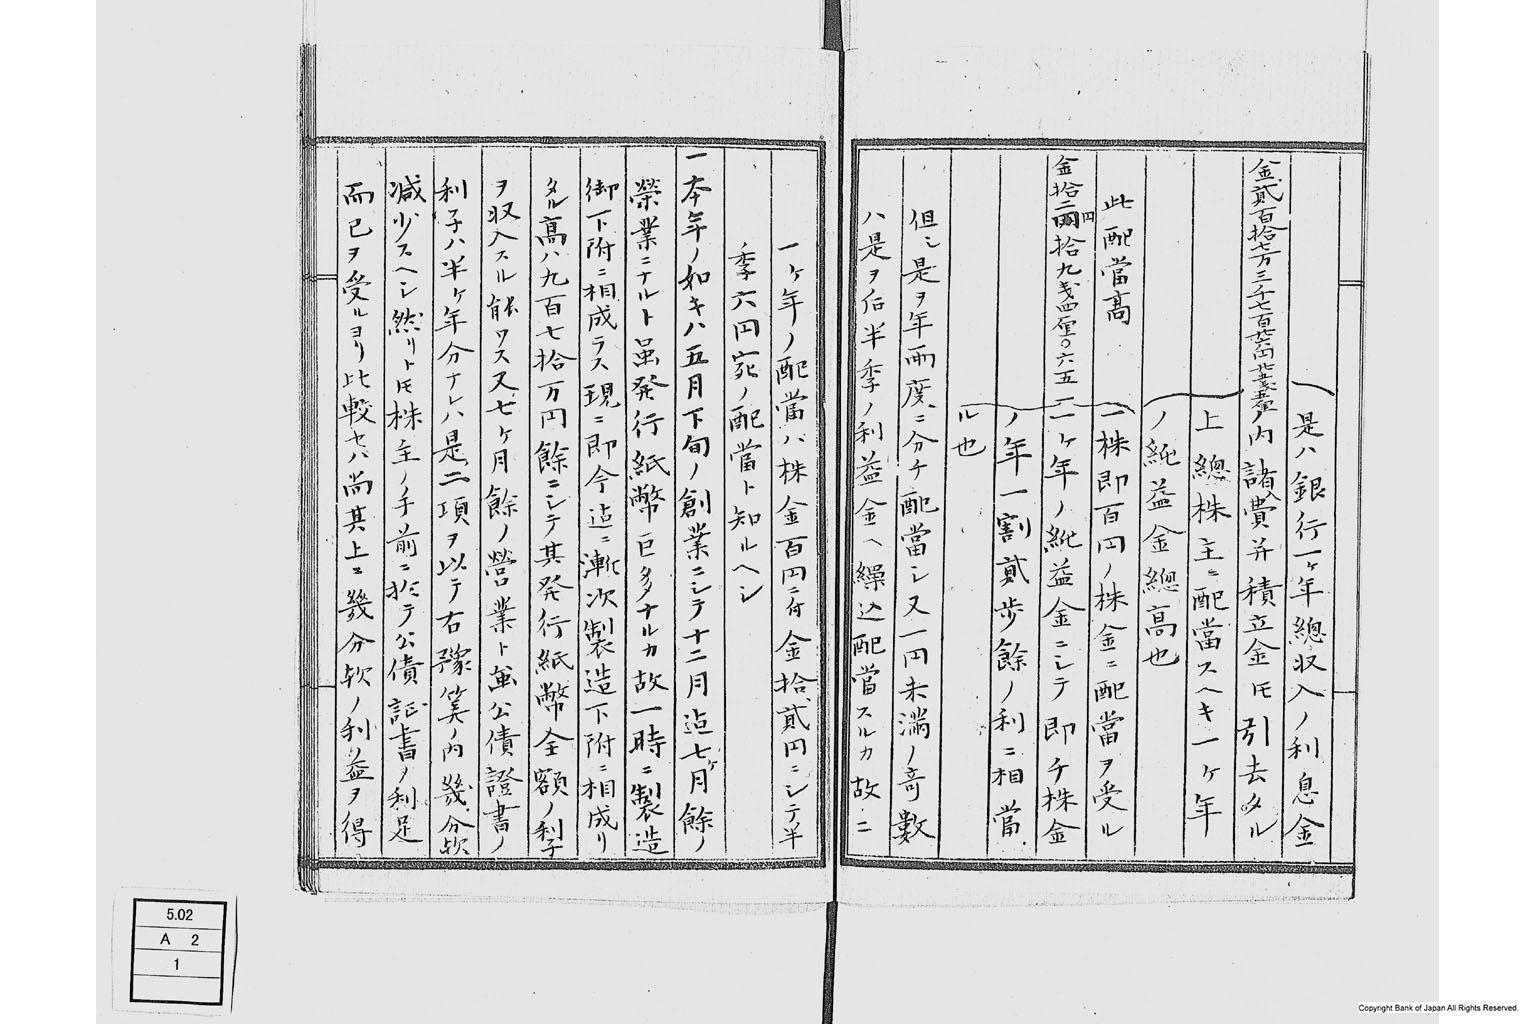 是ハ銀行一ヶ年總収入ノ利息金
金貳百拾七万三千七百廿六円廿五戋五厘ノ内諸費并積立金㆑引去タル
上總株主ニ配當スヘキ一ヶ年
ノ純益金總高也
此配當高
一株即百円ノ株金ニ配當ヲ受ル
金拾二円四拾九戋四厘〇六五
一ヶ年ノ純益金ニシテ即チ株金
ノ年一割貳歩餘ノ利ニ相當
ル也
但シ是ヲ年両度ニ分チ配當シ又一円未満ノ奇數
ハ是ヲ后半季ノ利益金ヘ繰込配當スルカ故ニ
一ヶ年ノ配當ハ株金百円ニ付金拾貳円ニシテ半
季六円宛ノ配當ト知ルヘシ
一本年ノ如キハ五月下旬ノ創業ニシテ十二月迠七ヶ月餘ノ
榮業ニナルト虽発行紙幣巨多ナルカ故一時ニ製造
御下附ニ相成ラス現ニ即今迠ニ漸次製造下附ニ相成リ
タル高ハ九百七拾万円餘ニシテ其発行紙幣全額ノ利子
ヲ収入スル能ワス又七ヶ月餘ノ營業ト虽公債證書ノ
利子ハ半ヶ年分ナレハ是二項ヲ以テ右豫算ノ内幾分歟
減少スヘシ然リト𪜈株主ノ手前ニ於テ公債証書ノ利足
而已ヲ受ルヨリ比較セハ尚其上ニ幾分歟ノ利益ヲ得
5.02
A 2
1
Copyright Bank of Japan All Rights Reserved.